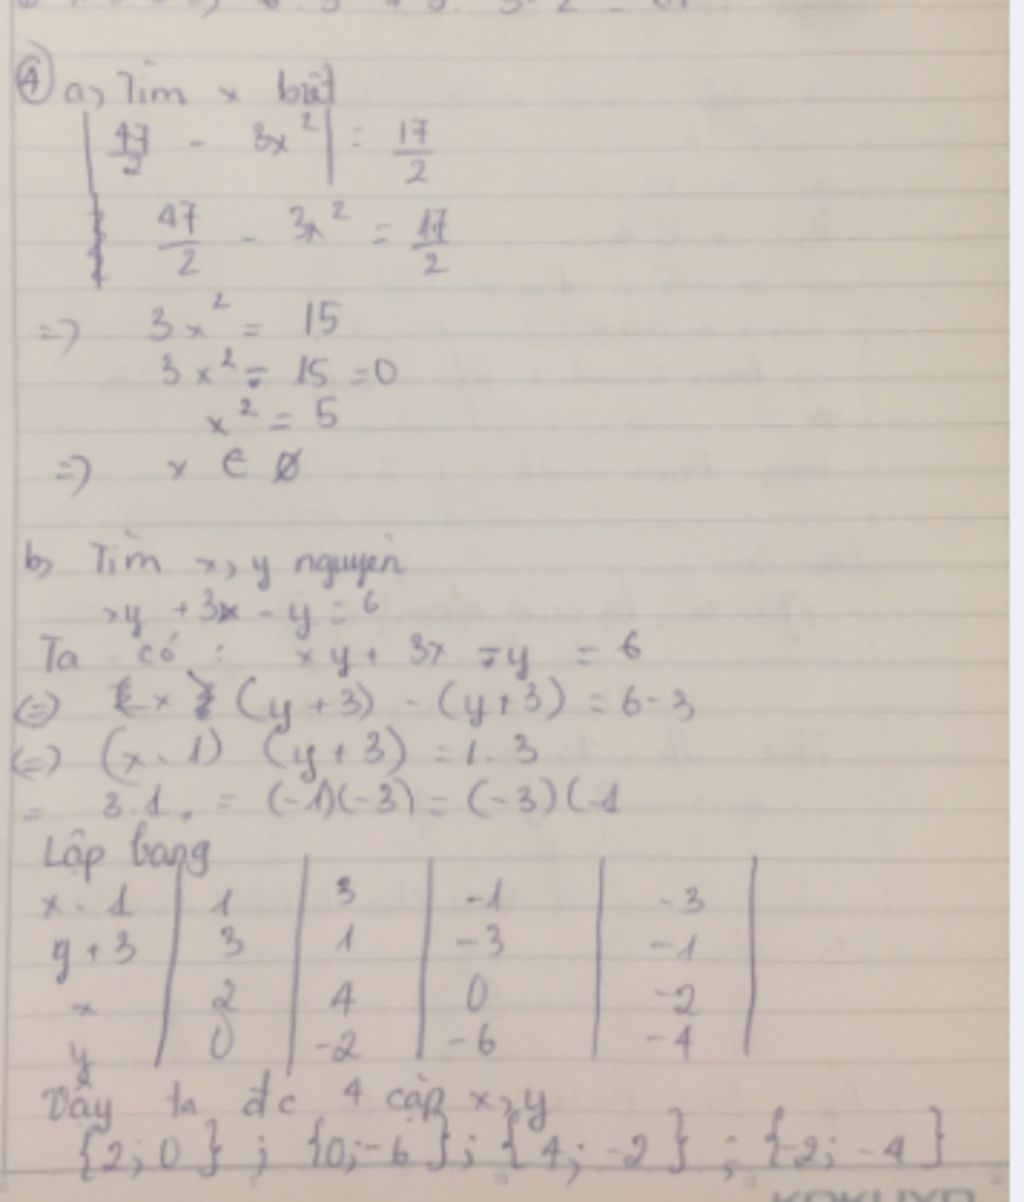 ④ a, Tìm x biết
|47/2 - 3x²| = 17/2
47/2 - 3x² = 17/2
=) 3x² = 15
3x² - 15 = 0
x² = 5
=) x ∈ ∅
b, Tìm x, y nguyên
xy + 3x - y = 6
Ta có : xy + 3x - y = 6
(=) x (y + 3) - (y + 3) = 6 - 3
(=) (x - 1) (y + 3) = 1. 3
= 3.1. = (-1)(-3) = (-3)(-1
Lập bảng
x - 1 | 1 | 3 | -1 | -3 |
y + 3 | 3 | 1 | -3 | -1 |
x | 2 | 4 | 0 | -2 |
y | 0 | -2 | -6 | -4 |
Vậy ta đc 4 cặp x, y
{2; 0} ; {0; -6}; {4; -2} ; {-2; -4}